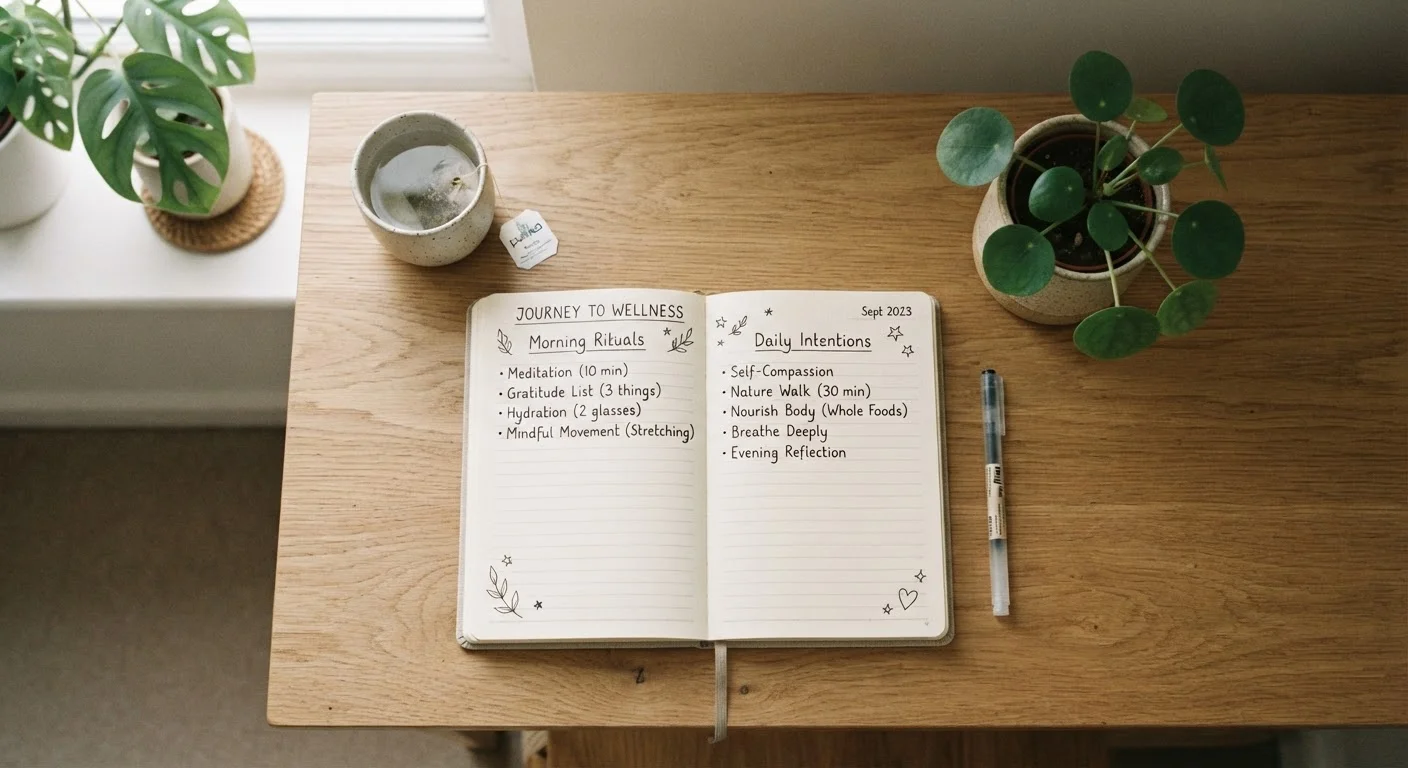 JOURNEY TO WELLNESS
Morning Rituals
• Meditation (10 min)
• Gratitude List (3 things)
• Hydration (2 glasses)
• Mindful Movement (Stretching)
Sept 2023
Daily Intentions
• Self-Compassion
• Nature Walk (30 min)
• Nourish Body (Whole Foods)
• Breathe Deeply
• Evening Reflection